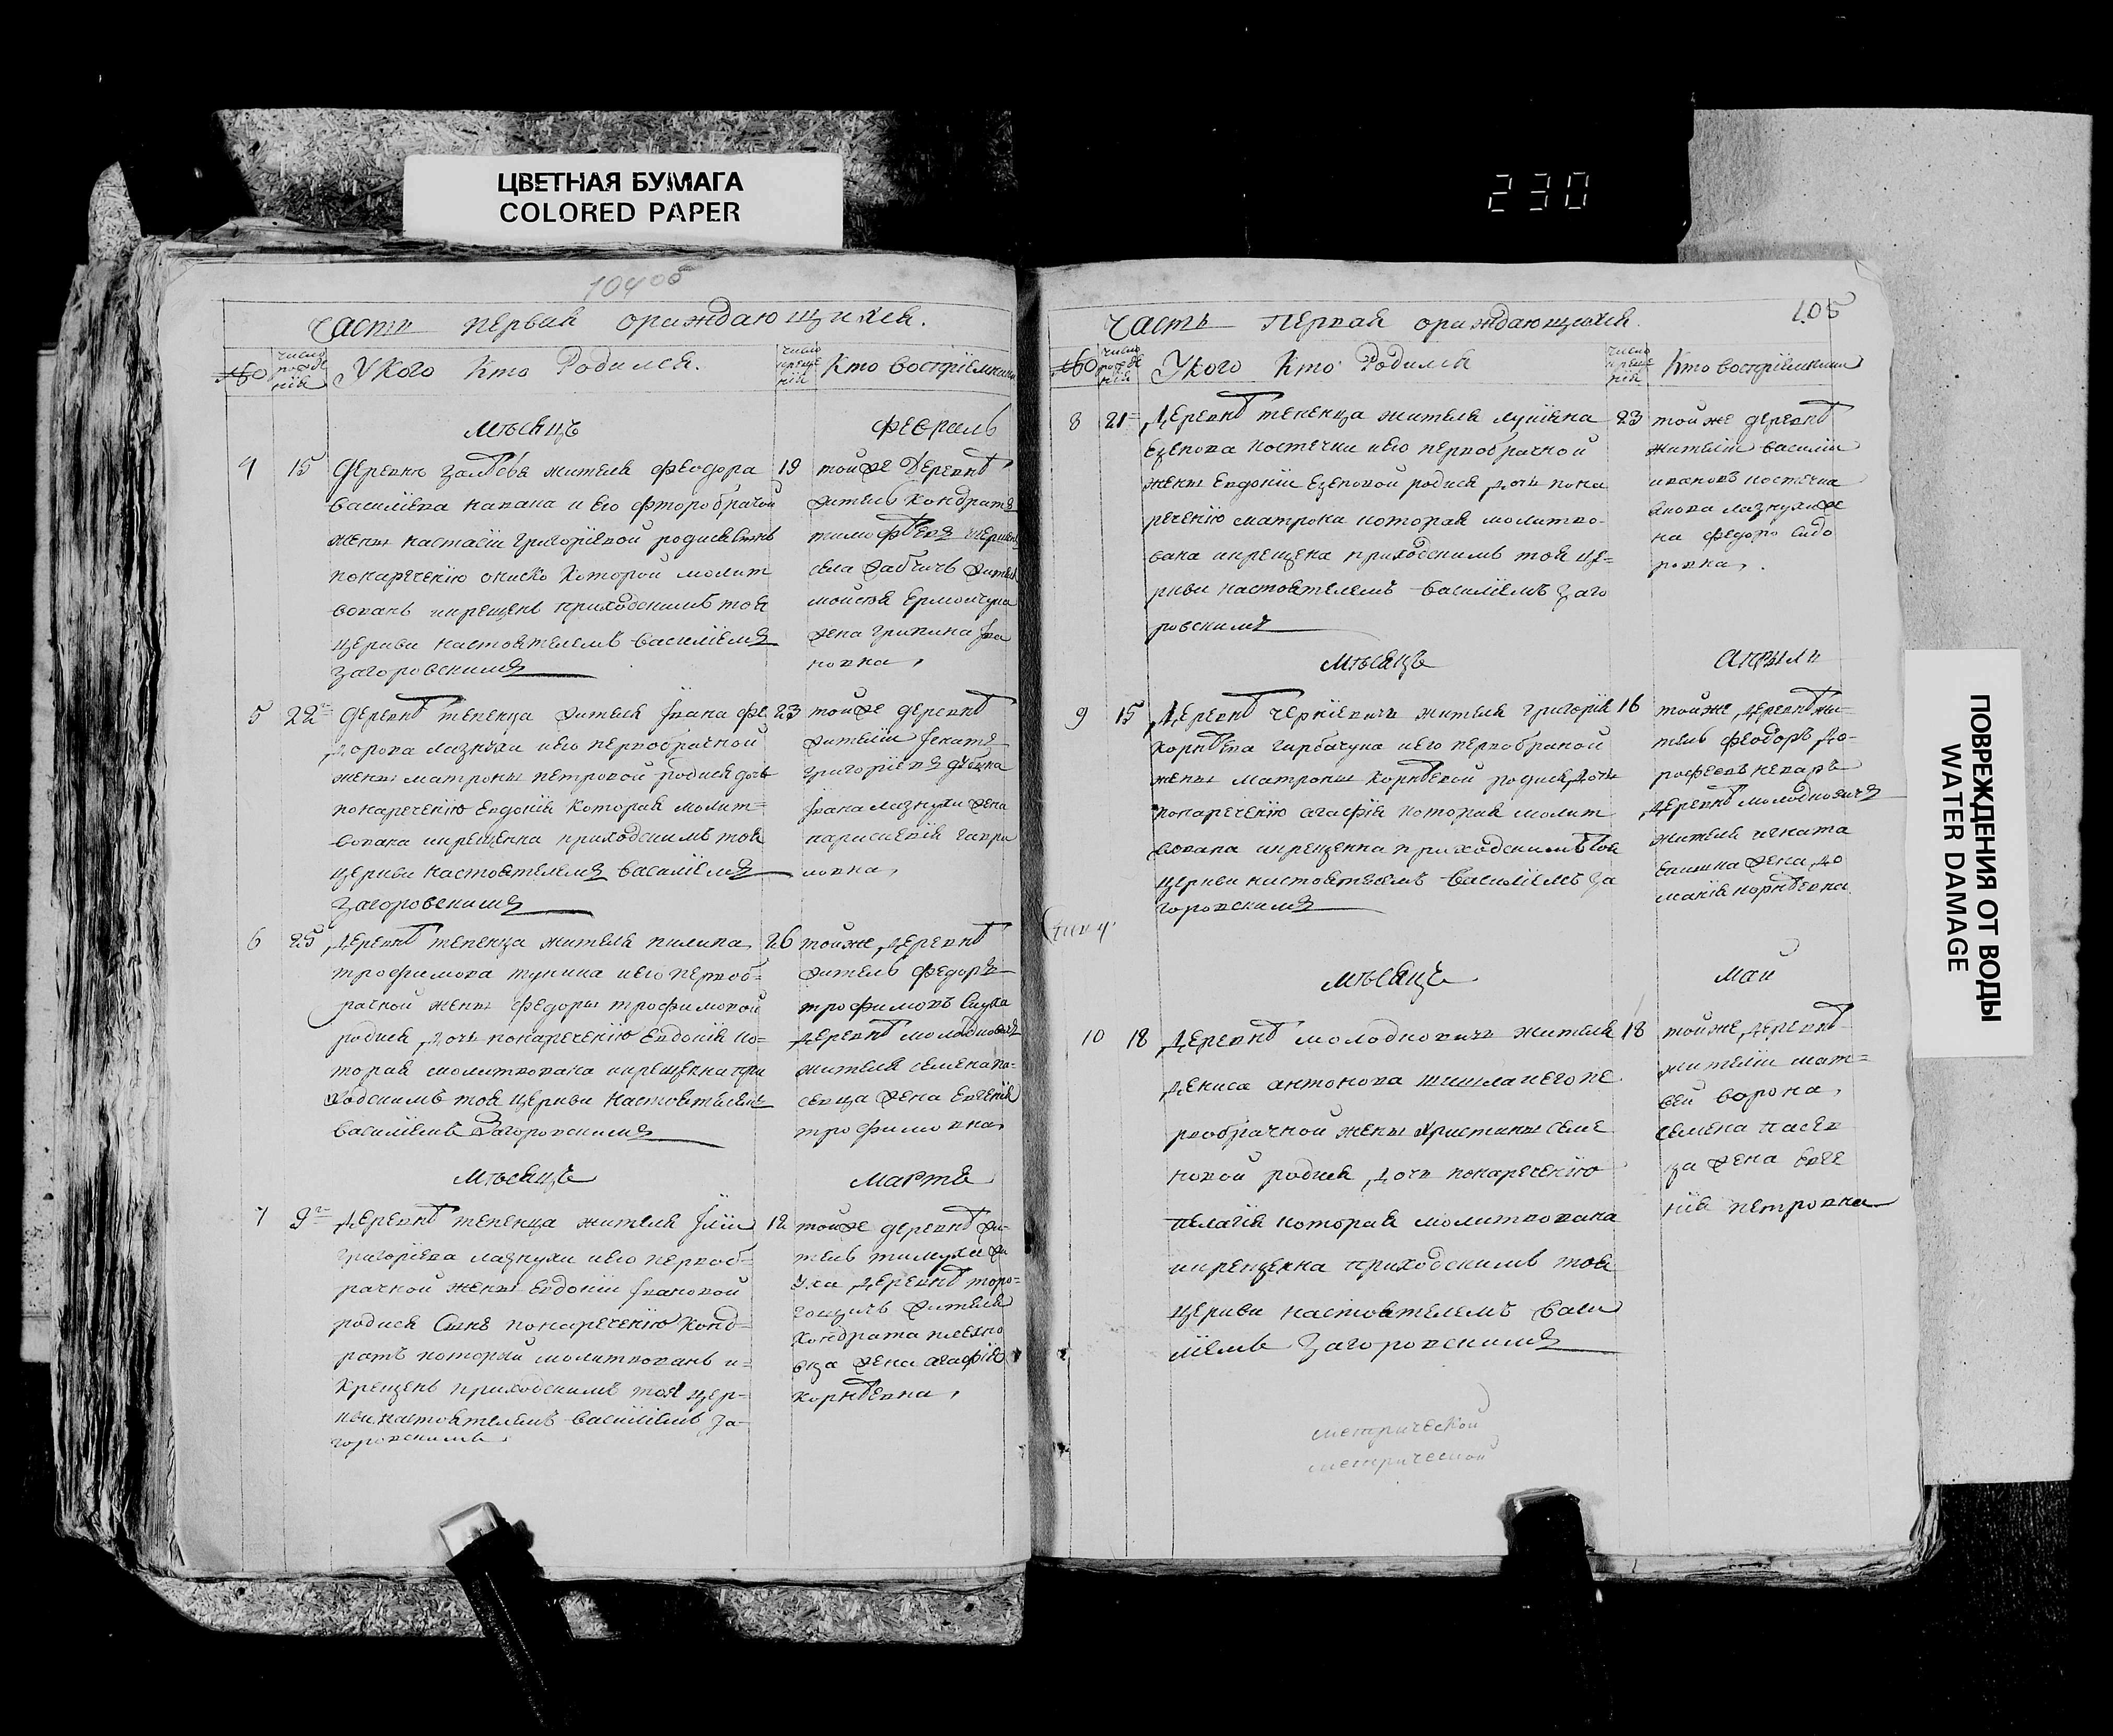 ЦВЕТНАЯ БУМАГА
COLORED PAPER
230
104об
Часть первая ораждающихся.
№
число рожде нія
У кого кто Родился.
число креще нія
Кто воспріемники
Мѣсяцъ Февраль
4 15 19
деревни жителя Феодора
Василіева капана и его фторобрачной
жены настасіи григоріевой родися сынъ
понаречению которой молит
вованъ икрещенъ приходскимъ тоя
церкви настоятелемъ василіемъ
загоровскимъ
тойже деревнѣ
житель кондратъ
села житель
жена
новна,
5 22 23
деревнѣ тепенца жителя Iвана Фе
дорова лазнухи иего первобрачной
жены матроны петровой родися дочь
понаречению Евдокія которая молит=
вована икрещенна приходскимъ тоя
церкви настоятелемъ василіемъ
загоровскимъ
тойже деревнѣ
жители
григоріевъ
Iвана лазнухи жена
гаври
ловна,
6 25 26
деревнѣ тепенца жителя пилипа
трофимова тупица иего первоб=
рачной жены Федоры трофимовой
родися дочь понаречению Евдокія ко=
торая молитвована икрещенна при
ходскимъ тоя церкви настоятелемъ
василіемъ Загоровскимъ
тойже деревнѣ
житель Федоръ
трофимовъ
деревнѣ
жителя семена па=
севца жена Евгенія
трофимовна,
Мѣсяцъ Мартъ
7 9 12
деревнѣ тепенца жителя
григоріева лазнухи иего первоб=
рачной жены Евдокіи Iвановой
родися Сынъ понаречению Конд=
ратъ который молитвованъ и=
крещенъ приходскимъ тоя цер=
кви настоятелемъ василіемъ за=
горовскимъ.
тойже деревнѣ жи=
тель
деревнѣ торо=
гощичь жителя
кондрата
жена агафія
корнѣевна,
105
Часть Первая ораждающихся.
№
число рожде нія
У кого Кто Родился
число креще нія
Кто воспріемники
8 21 23
деревнѣ тепенца жителя
постечки иего первобрачной
жены Евдокіи родися дочь пона
речению матрона которая молитво=
вана икрещена приходскимъ тоя це=
ркви настоятелемъ василіемъ заго
ровскимъ
тойже деревнѣ
жители василій
ивановъ
на федора сидо
ровна,
Мѣсяцъ Апрыль
9 15 16
деревнѣ жителя григорія
корнѣева иего первобраной
жены матроны корнѣевой родися дочь
понаречению агафія которая молит
вована икрещенна приходскимъ тоя
церкви настоятелемъ василіемъ за
горовскимъ
тойже деревнѣ жи=
тель феодоръ до=
рофеевъ
деревнѣ молодковичъ
жителя игната
жена до
корнѣевна
Мѣсяцъ Май
10 18 18
деревнѣ молодковичъ жителя
дениса антонова иего пе
рвобрачной жены христины семе
новой родися дочь понаречению
пелагія которая молитвована
икрещенна приходскимъ тоя
церкви настоятелемъ васи
ліемъ Загоровскимъ
тойже деревнѣ
жители мат=
вей ворона,
семена пасев
ца жена Евге
нія петровна
метрической
метрической
ПОВРЕЖДЕНИЯ ОТ ВОДЫ
WATER DAMAGE